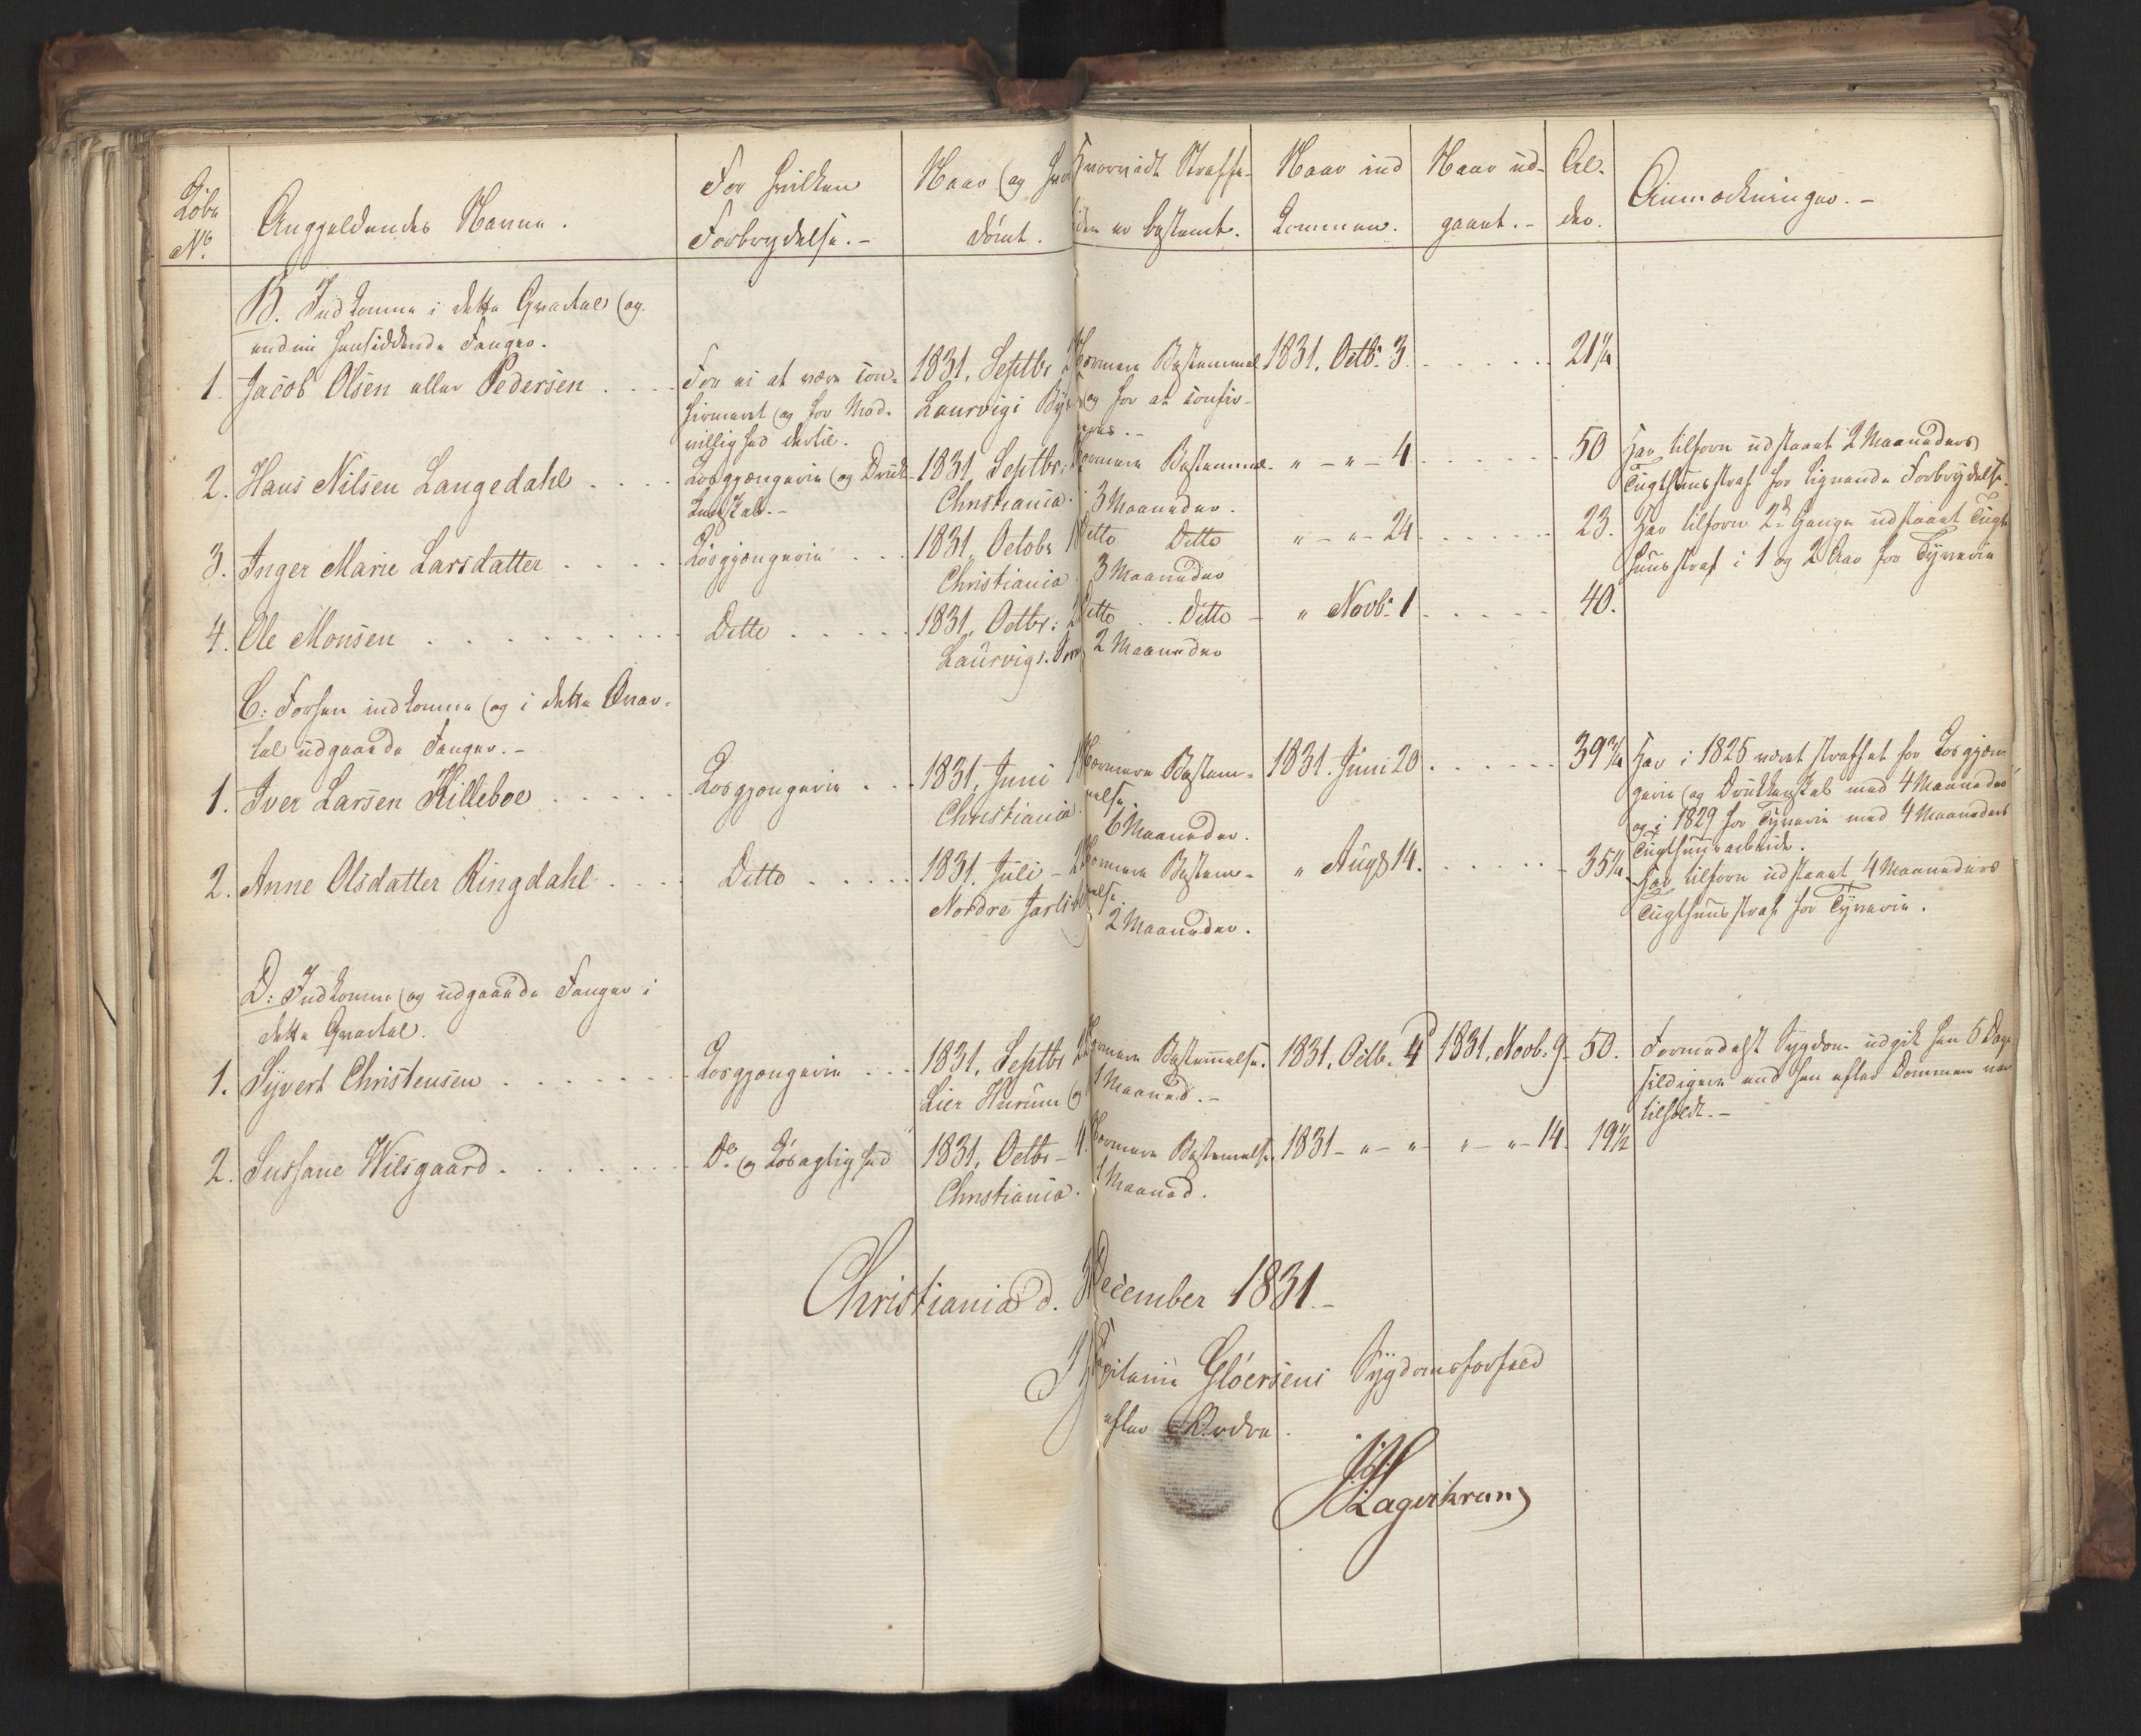 Löbe
No.
Anggjeldendes Navne.
For hvilken
Forbrydelse.-
Naar og hvor
dömt.
Hvorvidt Straffe-
tiden er bestemt.
Naar ind
kommen.
Naar ud-
gaaet.-
Al-
der.
Anmærkninger.-
B. Indkomne i dette Qvartal og
endnu hensiddende Fanger.
1. Jacob Olsen eller Pedersen . . . .
For ei at være con-
firmeret og for Mod-
villighed dertil.
1831, Septbr
Laurvigs
Nærmere Bestemmel
og for at confir-
meres.-
1831. Octb. 3. . . . .
21¼
2. Hans Nilsen Langedahl . . . .
Losgjængerie og Druk-
kenskab.-
1831. Septbr.
Christiania.
Nærmere Bestemmel.
3 Maaneder.
" - " - 4 . . . .
50
Har tilforn udstaaet 2 Maaneders
Tugthuusstraf for lignende Forbrydelse.
3. Inger Marie Larsdatter . . . .
Lösgjængerie . . .
1831, Octobr
Christiania.
Ditto Ditto
3 Maaneder
" - " - 24 . . . .
23.
Har tilforn 2de Gange udstaaet Tugt
huusstraf i 1 og 2 Aar for Tyverie
4. Ole Monsen . . . . . . . .
Ditto . . . . .
1831, Octbr:
Laurvigs
Ditto . . Ditto -
2 Maaneder
" Novbr. 1 . . . .
40.
C: Forhen indkomne og i dette Qvar-
tal udgaaede Fanger.-
1. Iver Larsen Killeboe . . . . .
Losgjængerie . . .
1831, Juni
Christiania.
Nærmere Bestem-
melse.
6 Maaneder.
1831. Juni 20 . . . . .
39¾
Har i 1825 været straffet for Losgjæn-
gerie og Drukkenskab med 4 Maaneder
og i 1829 for Tyverie med 4 Maaneders
Tugthuusarbeide.
2. Anne Olsdatter Ringdahl . . . .
Ditto . . . . .
1831. Juli -
Nordre Jarlsb
Nærmere Bestem-
melse.
2 Maaneder.
" Augs 14. . . . .
35¼
Har tilforn udstaaet 4 Maaneders
Tugthuusstraf for Tyverie.
D: Indkomne og udgaaede Fanger i
dette Qvartal.
1. Syvert Christensen . . . . . .
Losgjængerie . . .
1831, Septbr
Lier Hurum og
Nærmere Bestemmelse.
1 Maaned.-
1831. Octb. 4
1831. Novb. 9
50.
Formedelst Sygdom udgik han 5 Dage
sildigere end han efter Dommen var
tilholdt.-
2. Sussane Wilsgaard . . . . . .
Do. og Lösagtighed
1831, Octbr - 4.
Christiania.
Nærmere Bestemmelse.
1 Maaned.
1831 - " - "
" - " - 14.
19½
Christiania d. December 1831.-
Capitain Glöersens Sygdomsforfald
efter Ordre.
Lagerkrans